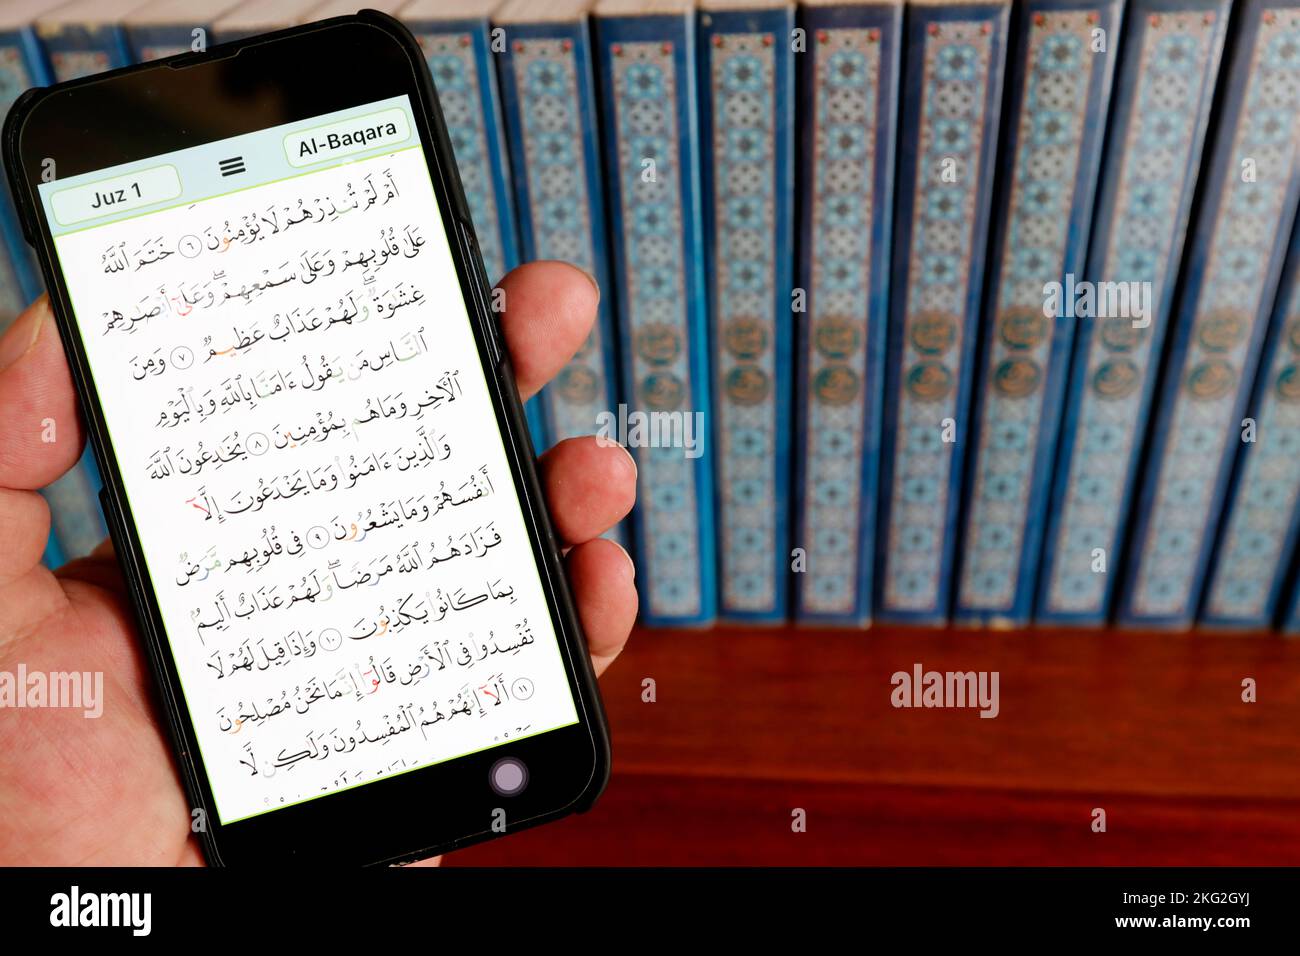 Juz 1
Al-Baqara
أَمْ لَمْ تُنذِرْهُمْ لَا يُؤْمِنُونَ ٦ خَتَمَ ٱللَّهُ
عَلَىٰ قُلُوبِهِمْ وَعَلَىٰ سَمْعِهِمْ ۖ وَعَلَىٰٓ أَبْصَـٰرِهِمْ
غِشَـٰوَةٌ ۖ وَلَهُمْ عَذَابٌ عَظِيمٌ ٧ وَمِنَ
ٱلنَّاسِ مَن يَقُولُ ءَامَنَّا بِٱللَّهِ وَبِٱلْيَوْمِ
ٱلْـَٔاخِرِ وَمَا هُم بِمُؤْمِنِينَ ٨ يُخَـٰدِعُونَ ٱللَّهَ
وَٱلَّذِينَ ءَامَنُوا۟ وَمَا يَخْدَعُونَ إِلَّآ
أَنفُسَهُمْ وَمَا يَشْعُرُونَ ٩ فِى قُلُوبِهِم مَّرَضٌ
فَزَادَهُمُ ٱللَّهُ مَرَضًا ۖ وَلَهُمْ عَذَابٌ أَلِيمٌۢ
بِمَا كَانُوا۟ يَكْذِبُونَ ١٠ وَإِذَا قِيلَ لَهُمْ لَا
تُفْسِدُوا۟ فِى ٱلْأَرْضِ قَالُوٓا۟ إِنَّمَا نَحْنُ مُصْلِحُونَ
١١ أَلَآ إِنَّهُمْ هُمُ ٱلْمُفْسِدُونَ وَلَـٰكِن لَّا
alamy
Image ID: 2KG2GYJ
www.alamy.com